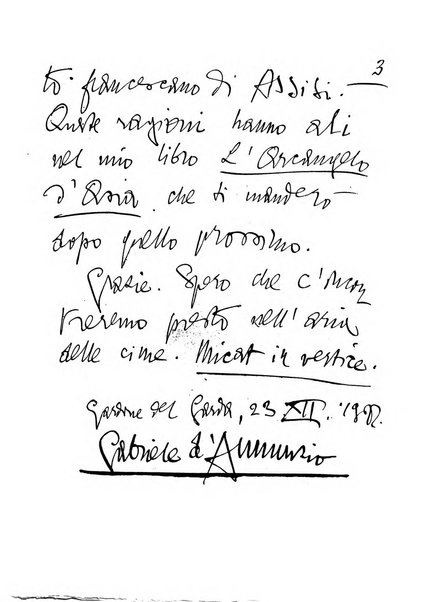 3
to francescano di Assisi.
Queste ragioni hanno ali
nel mio libro L'Arcangelo
d'Asia che ti manderò
dopo quello prossimo.
Grazie. Spero che c'incon
treremo presto nell'aria
delle cime. Micat in vertice.
Gardone del Garda, 23 XII.
Gabriele d'Annunzio